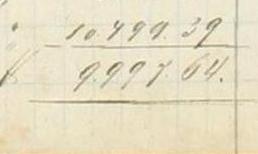 10.799.39
9.997.64.